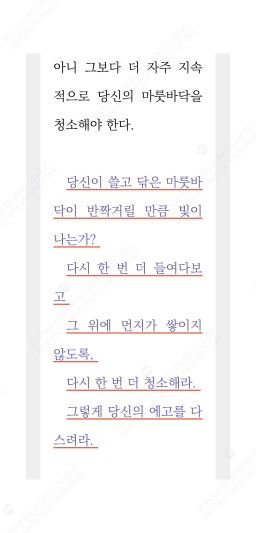 아니 그보다 더 자주 지속
적으로 당신의 마룻바닥을
청소해야 한다.
당신이 쓸고 닦은 마룻바
닥이 반짝거릴 만큼 빛이
나는가?
다시 한 번 더 들여다보
고
그 위에 먼지가 쌓이지
않도록,
다시 한 번 더 청소해라.
그렇게 당신의 에고를 다
스려라.